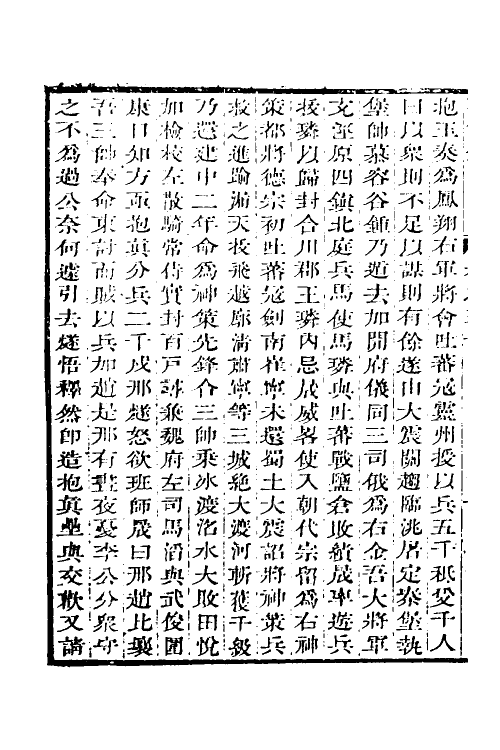 抱玉奏爲鳳翔右軍將會吐蕃寇靈州授以兵五千祗受千人
曰以衆則不足以謀則有餘遂由大震關趣臨洮屠定秦堡執
堡帥慕容谷鍾乃遁去加開府儀同三司俄爲右金吾大將軍
充涇原四鎮北庭兵馬使馬璘與吐蕃戰鹽倉敗績晟率遊兵
拔璘以歸封合川郡王璘內忌晟威畧使入朝代宗留爲右神
策都將德宗初吐蕃寇劍南崔寧未還蜀土大震詔將神策兵
救之進踰漏天拔飛越廓清肅寧等三城絶大渡河斬獲千級
乃還建中二年命爲神策先鋒合三帥乘冰渡洺水大敗田悅
加檢校左散騎常侍實封百戸尋兼魏府左司馬滔與武俊圍
康日知方面抱眞分兵二千戍邢燧怒欲班師晟曰邢趙比壤
吾三帥奉命東討而賊以兵加趙是邢有晝夜憂李公分衆守
之不爲過公奈何遽引去燧悟釋然即造抱眞壘與交歡又請